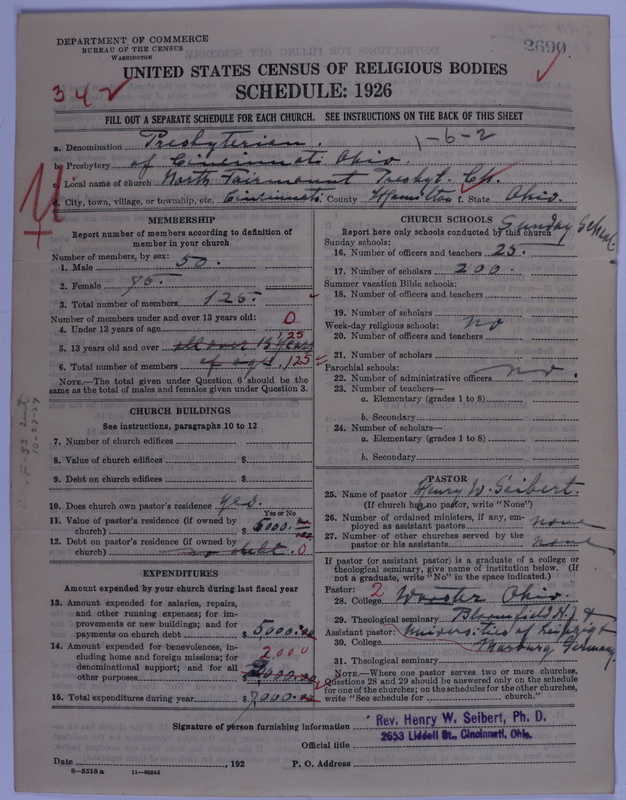 DEPARTMENT OF COMMERCE
BUREAU OF THE CENSUS
WASHINGTON
2690
UNITED STATES CENSUS OF RELIGIOUS BODIES
SCHEDULE: 1926
342
FILL OUT A SEPARATE SCHEDULE FOR EACH CHURCH. SEE INSTRUCTIONS ON THE BACK OF THIS SHEET
1-6-2
a. Denomination Presbyterian.
b. Presbytery of Cincinnati Ohio.
c. Local name of church North Fairmount Presbyt. Ch.
d. City, town, village, or township, etc. Cincinnati County Hamilton f. State Ohio.
MEMBERSHIP
Report number of members according to definition of member in your church
Number of members, by sex:
1. Male 50.
2. Female 75.
3. Total number of members 125.
Number of members under and over 13 years old:
4. Under 13 years of age 0
5. 13 years old and over all over 13 years 125
6. Total number of members of age. 125
NOTE.—The total given under Question 6 should be the same as the total of males and females given under Question 3.
CHURCH BUILDINGS
See instructions, paragraphs 10 to 12
7. Number of church edifices
8. Value of church edifices $
9. Debt on church edifices $
10. Does church own pastor's residence yes.
Yes or No
11. Value of pastor's residence (if owned by church) $ 6000.
12. Debt on pastor's residence (if owned by church) no debt. 0
EXPENDITURES
Amount expended by your church during last fiscal year
13. Amount expended for salaries, repairs, and other running expenses; for improvements or new buildings; and for payments on church debt $ 5000.00
14. Amount expended for benevolences, including home and foreign missions; for denominational support; and for all other purposes 2000 $ 2000.00
15. Total expenditures during year $ 7000.00
CHURCH SCHOOLS Sunday School
Report here only schools conducted by this church
Sunday schools:
16. Number of officers and teachers 25.
17. Number of scholars 200.
Summer vacation Bible schools:
18. Number of officers and teachers
19. Number of scholars
Week-day religious schools: no
20. Number of officers and teachers
21. Number of scholars
Parochial schools:
22. Number of administrative officers no.
23. Number of teachers—
a. Elementary (grades 1 to 8)
b. Secondary
24. Number of scholars—
a. Elementary (grades 1 to 8)
b. Secondary
PASTOR
25. Name of pastor Henry W. Seibert.
(If church has no pastor, write "None")
26. Number of ordained ministers, if any, employed as assistant pastors none
27. Number of other churches served by the pastor or his assistants none
If pastor (or assistant pastor) is a graduate of a college or theological seminary, give name of institution below. (If not a graduate, write "No" in the space indicated.)
Pastor: 2
28. College Wooster Ohio.
29. Theological seminary Bloomfield N.J &
Assistant pastor: Universities of Leipzig &
30. College Marburg, Germany.
31. Theological seminary
NOTE.—Where one pastor serves two or more churches, Questions 28 and 29 should be answered only on the schedule for one of the churches; on the schedules for the other churches, write "See schedule for church."
Signature of person furnishing information Rev. Henry W. Seibert, Ph. D.
2653 Liddell St., Cincinnati, Ohio.
Official title
Date , 192 P. O. Address
8-5518a 11-9054d